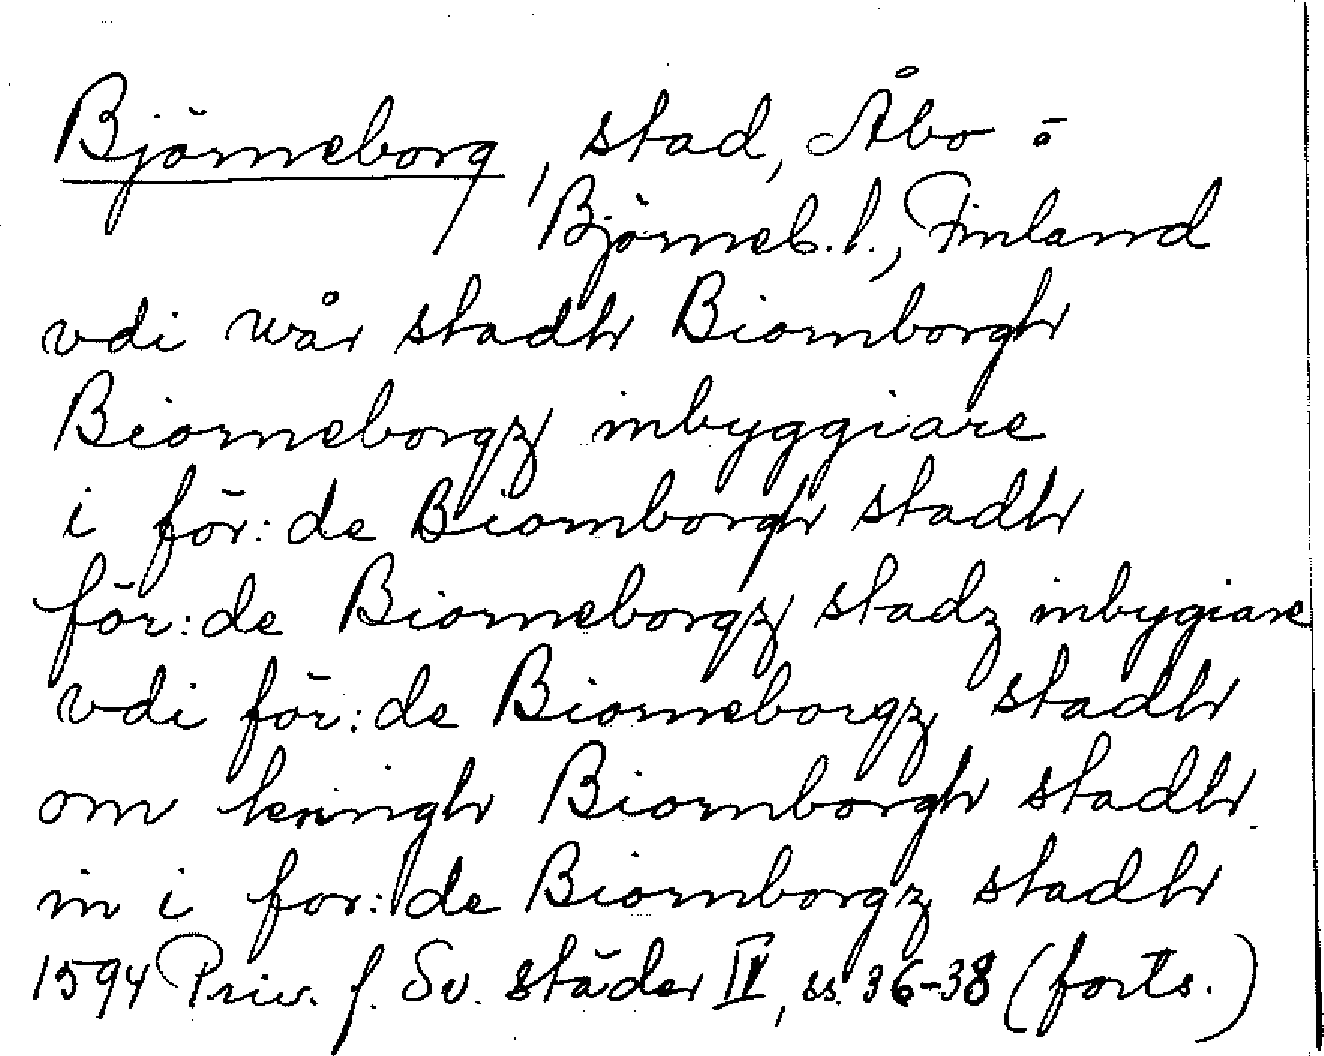 Björneborg, stad, Åbo o.
Björneb. l., Finland
vdi wår stadh Biornborgh
Biorneborgz inbyggiare
i för:de Biornborgh stadh
för:de Biorneborgz stadz inbygiare
vdi för:de Biorneborgz stadh
om kringh Biornborgh stadh
in i for:de Biornborgz stadh
1594 Priv. f. Sv. städer IV, ss. 36-38 (forts.)